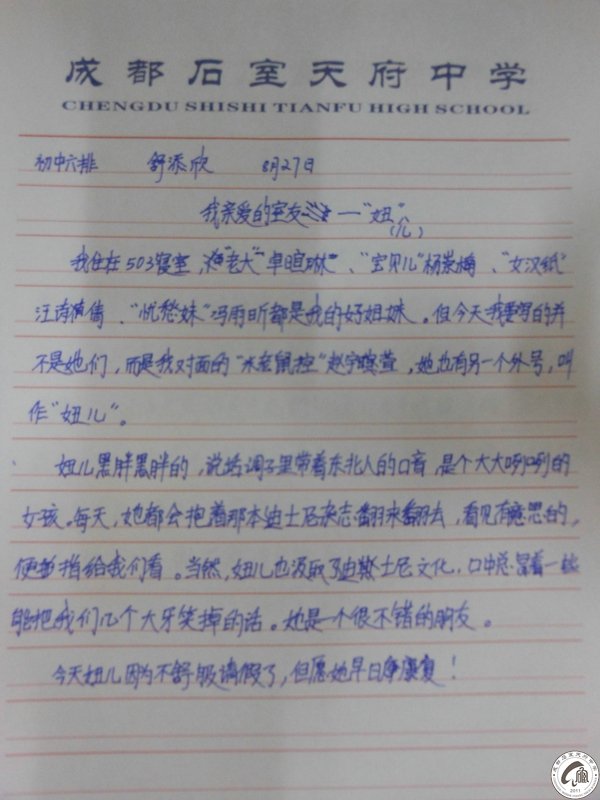 成都石室天府中学
CHENGDU SHISHI TIANFU HIGH SCHOOL
初中六排 舒添欣 8月27日
我亲爱的室友 —"妞"(儿)
我住在503寝室,"老大"卓暄琳、"宝贝儿"杨崇楠、"女汉纸"
汪诗倩、"忧愁妹"冯雨昕都是我的好姐妹。但今天我要写的并
不是她们,而是我对面的"米老鼠控"赵宇萱,她也有另一个外号,叫
作"妞儿"。
妞儿黑胖黑胖的,说话调子里带着东北人的口音,是个大大咧咧的
女孩。每天,她都会抱着那本迪士尼杂志翻来翻去,看见有意思的,
便指给我们看。当然,妞儿也汲取了迪士尼文化,口中总冒着一些
能把我们几个大牙笑掉的话。她是一个很不错的朋友。
今天妞儿因为不舒服请假了,但愿她早日康复!
2011